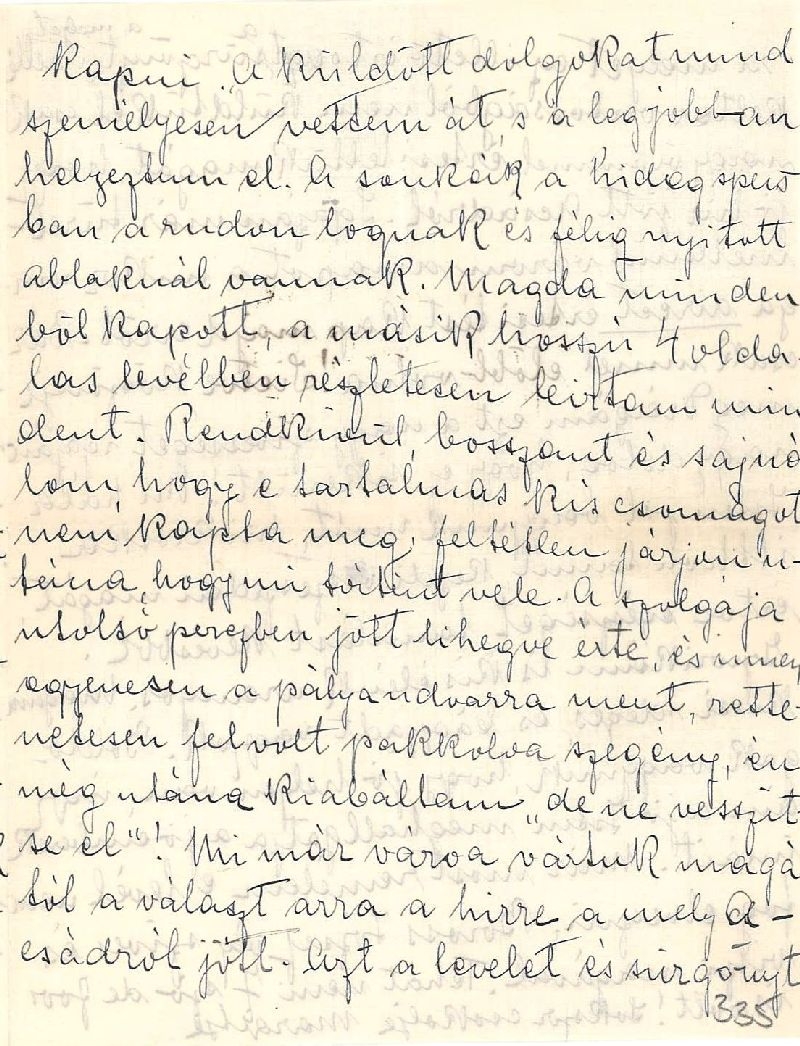 kapni. A küldött dolgokat mind
személyesen vettem át, s a legjobban
helyeztem el. A sonkák a hidegspeis
ban a rudon lognak és félig nyitott
ablaknál vannak. Magda minden
ből kapott, a másik hosszú 4 olda-
las levélben részletesen leirtam min
dent. Rendkivül bosszant és sajná
lom, hogy e tartalmas kis csomagot
nem kapta meg, feltétlen járjon u-
tána, hogy mi történt vele. A szolgája
utolsó perczben jött lihegve érte, és innen
egyenesen a pályaudvarra ment, rette-
netesen fel volt pakkolva szegény, én
még utána kiabáltam „de ne veszit
se el"! Mi már várva vártuk magá
tól a választ arra a hirre a mely A-
csádról jött. Azt a levelet és sürgönyt
335